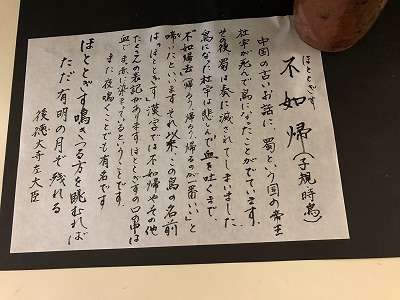 ほととぎす
不如帰(子規 時鳥)
中国の古いお話に、蜀という国の帝王
杜宇が死んで鳥になったことがでています。
その後 蜀は秦に滅されてしまいました
鳥になった杜宇は悲しんで血を吐くまで、
不如帰去(帰ろう帰ろう帰るのが一番いい)と
啼いたといいます それ以来、この鳥の名前
は「ほととぎす」漢字では不如帰やその他
たくさんの表記があります ほととぎすの口の中は
血で真赤に染まっているということです。
また 夜鳴くことでも有名です
ほととぎす鳴きつる方を眺むれば
ただ有明の月ぞ残れる
後徳大寺左大臣